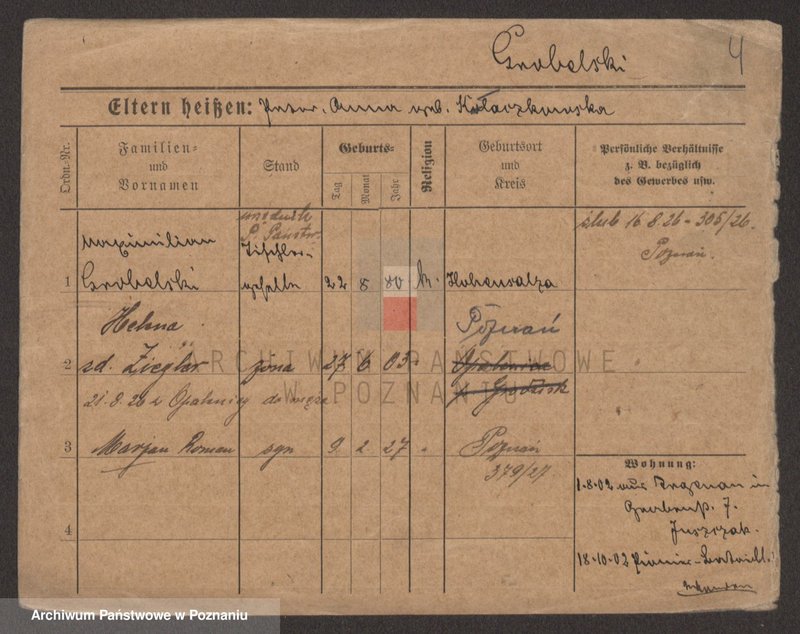 Grobelski 4
Eltern heißen: Peter, Anna geb. Kołaczkowska
Ordn.-Nr.
Familien- und Vornamen
Stand
Geburts-
Tag
Monat
Jahr
Religion
Geburtsort und Kreis
Persönliche Verhältnisse
z. B. bezüglich
des Gewerbes usw.
ślub 16.8.26 - 305/26.
Poznań.
Maximilian Tischler-
1 Grobelski geselle 22 8 80 k. Hohensalza
Helena Poznań
2 zd. Ziegler żona 27 6 03 Opalenica
21.8.26 z Opalenicy do męża p. Grodzisk
3 Marjan Roman syn 9 2 27 " Poznań
379/27.
4
Wohnung:
1.8.02 aus Argenau in
Grabenst. 7.
Juszczak.
18.10.02 Pionier-Bataill.
ARCHIWUM PAŃSTWOWE
W POZNANIU
Archiwum Państwowe w Poznaniu